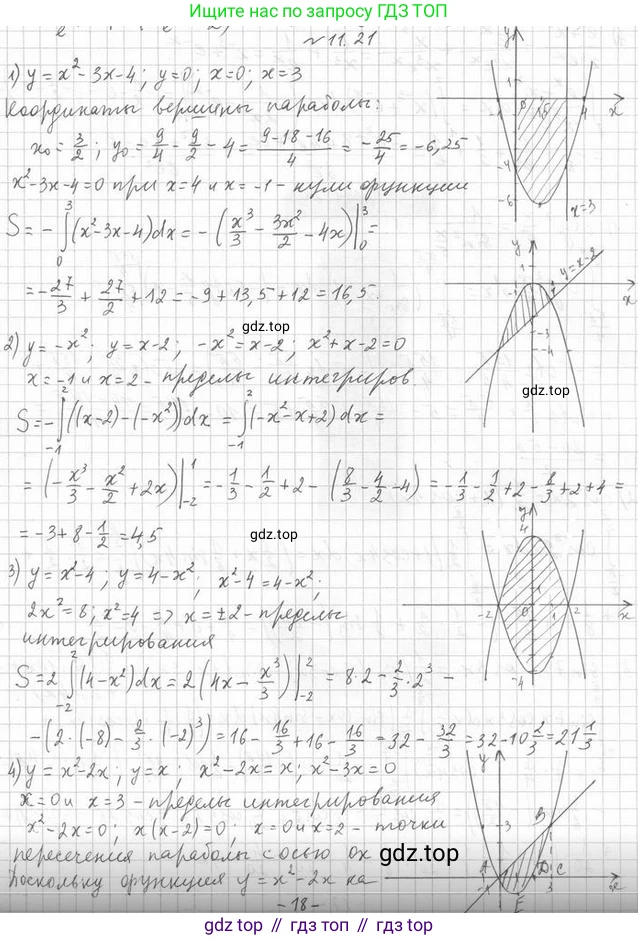 Ищите нас по запросу ГДЗ ТОП
№11.21
1) y = x² - 3x - 4; y = 0; x = 0; x = 3
Координаты вершины параболы:
x₀ = 3/2; y₀ = 9/4 - 9/2 - 4 = (9-18-16)/4 = -25/4 = -6,25
x² - 3x - 4 = 0 при x = 4 и x = -1 - нули функции
S = - ∫₀³ (x² - 3x - 4)dx = - (x³/3 - 3x²/2 - 4x)|₀³ =
= -27/3 + 27/2 + 12 = -9 + 13,5 + 12 = 16,5.
x=3
y = x-2
gdz.top
2) y = -x²; y = x-2; -x² = x-2; x² + x - 2 = 0
x = -1 и x = 2 - пределы интегриров
gdz.top
S = - ∫₋₁² ((x-2) - (-x²))dx = ∫₋₁² (-x² - x + 2)dx =
= (-x³/3 - x²/2 + 2x)|₋₂¹ = -1/3 - 1/2 + 2 - (8/3 - 4/2 - 4) = -1/3 - 1/2 + 2 - 8/3 + 2 + 4 =
= -3 + 8 - 1/2 = 4,5
gdz.top
3) y = x² - 4; y = 4 - x²; x² - 4 = 4 - x²;
2x² = 8; x² = 4 => x = ±2 - пределы
интегрирования
S = 2 ∫₋₂² (4 - x²)dx = 2 (4x - x³/3)|₋₂² = 8·2 - 2/3·2³ -
- (2·(-8) - 2/3·(-2)³) = 16 - 16/3 + 16 - 16/3 = 32 - 32/3 = 32 - 10 2/3 = 21 1/3
4) y = x² - 2x; y = x; x² - 2x = x; x² - 3x = 0
x = 0 и x = 3 - пределы интегрирования
x² - 2x = 0; x(x-2) = 0; x = 0 и x = 2 - точки
пересечения параболы с осью ox
gdz.top
Поскольку функция y = x² - 2x на
A B D C E
- 18 -
Решебники и ГДЗ // gdz.top // гдз.топ